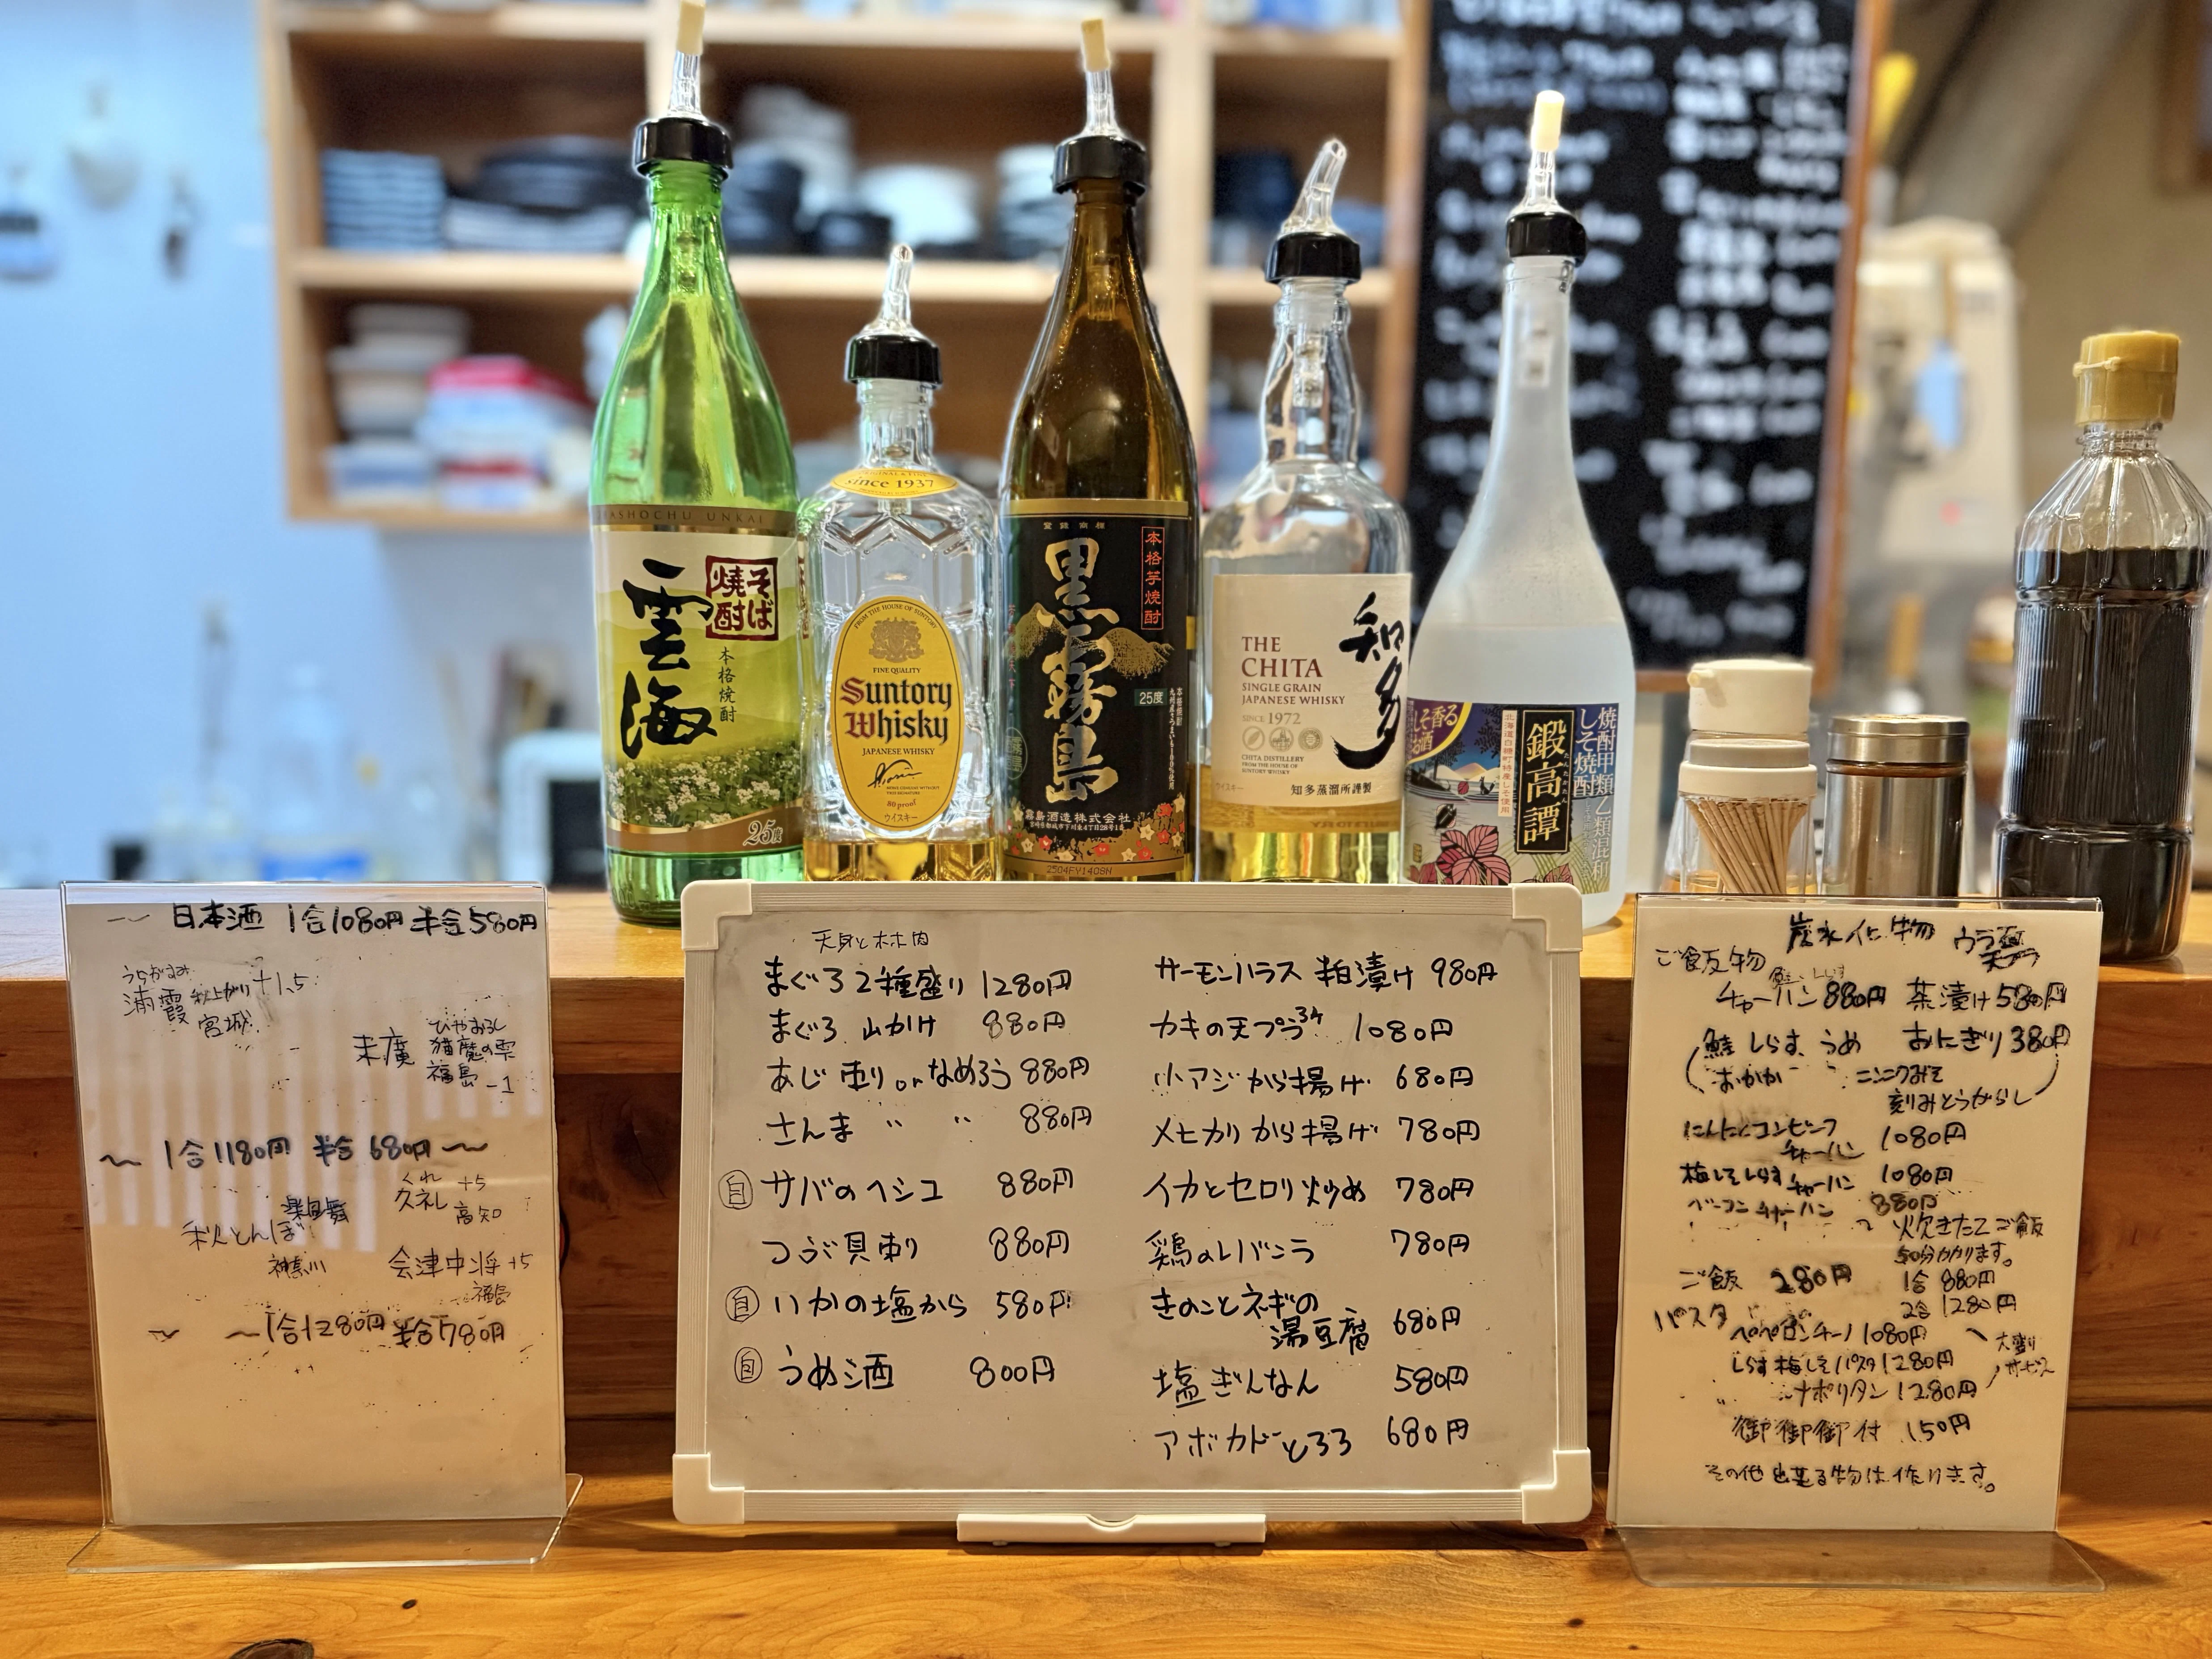 SOBASHOCHU UNKAI
そば
焼酎
雲海
本格焼酎
25度
ORIGINAL & FINE
since 1937
FROM THE HOUSE OF SUNTORY
FINE QUALITY
Suntory
Whisky
JAPANESE WHISKY
80 proof
ウイスキー
登録商標
本格芋焼酎
黒霧島
25度
霧島酒造株式会社
宮崎県都城市下川東4丁目28号1番
2504FY1408N
知多
THE
CHITA
SINGLE GRAIN
JAPANESE WHISKY
SINCE 1972
CHITA DISTILLERY
FROM THE HOUSE OF
SUNTORY WHISKY
ウイスキー
知多蒸溜所謹製
しそ香る
お酒
北海道白糠町特産しそ使用
鍛高譚
焼酎甲類乙類混和
しそ焼酎
日本酒 1合1080円 半合580円
うらかすみ
浦霞 秋上がり +1.5
宮城
末廣 ひやおろし
猫魔の雫
福島 -1
〜 1合1180円 半合680円 〜
くれ
久礼 +5
高知
楽風舞
秋とんぼ
神奈川
会津中将 +5
福島
〜 1合1280円 半合780円
天身と
まぐろ2種盛り 1280円
まぐろ 山かけ 880円
あじ 刺りorなめろう 880円
さんま 〃 〃 880円
自 サバのヘシコ 880円
つぶ貝刺り 880円
自 いかの塩から 580円
自 うめ酒 800円
サーモンハラス 粕漬け 980円
カキの天プラ3ケ 1080円
小アジから揚げ 680円
メヒカリから揚げ 780円
イカとセロリ炒め 780円
鶏のレバニラ 780円
きのことネギの
湯豆腐 680円
塩ぎんなん 580円
アボカドとろろ 680円
炭水化物
ご飯物
チャーハン 880円 茶漬け 580円
鮭 しらす、うめ おにぎり 380円
おかか ニンニクみそ
刻みとうがらし
にんにくコンビーフ
チャーハン 1080円
梅しそしらすチャーハン 1080円
ベーコンチャーハン 880円
炊きたてご飯
50分かかります。
ご飯 280円 1合 880円
2合 1280円
パスタ
ペペロンチーノ 1080円
しらす梅しそパスタ 1280円
ナポリタン 1280円
大盛り
サービス
御御御付 150円
その他出来る物は作ります。